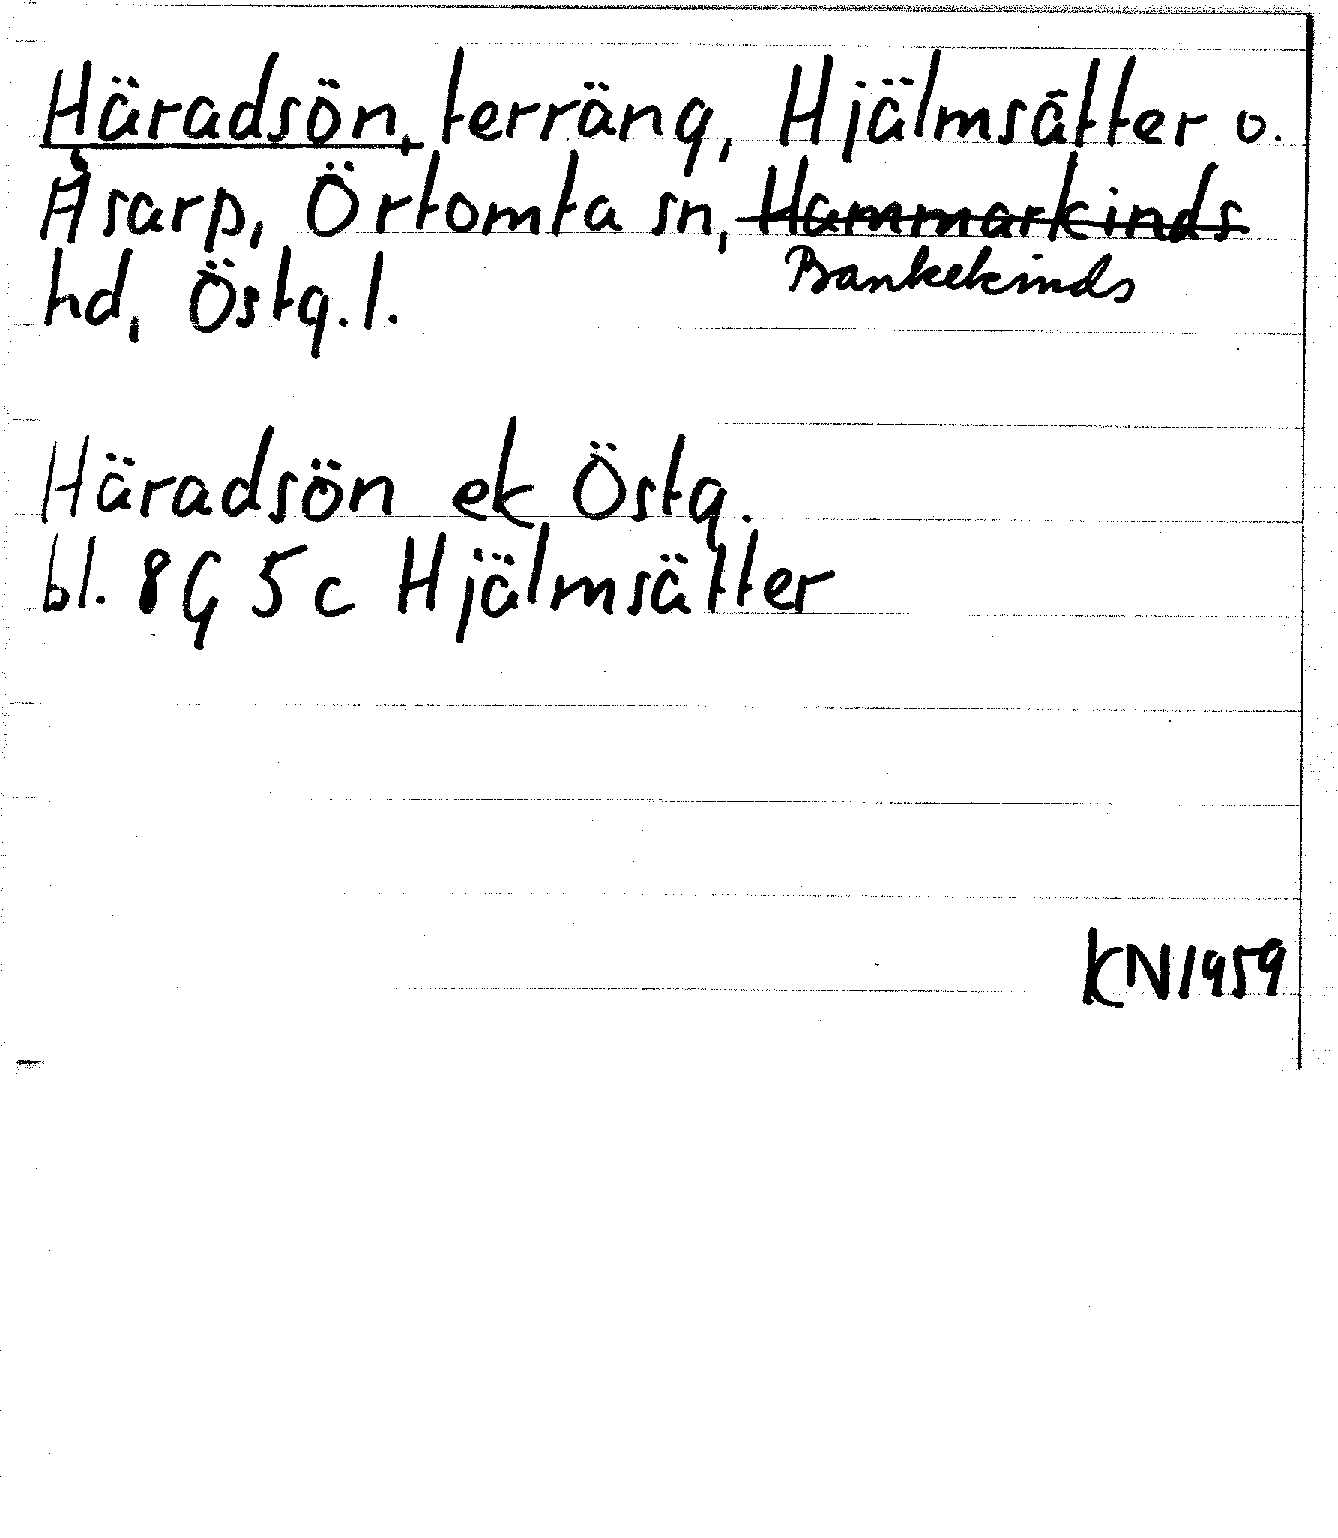 Häradsön, terräng, Hjälmsätter o.
Åsarp, Örtomta sn, Hammarkinds
Bankekinds
hd, Östg. l.
Häradsön ek Östg.
bl. 8G 5c Hjälmsätter
KN1959